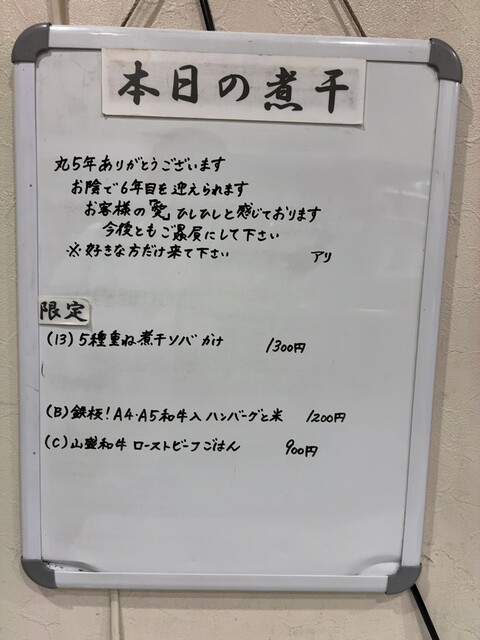 本日の煮干
丸5年ありがとうございます
お陰で6年目を迎えられます
お客様の「愛」ひしひしと感じております
今後ともご贔屓にして下さい
※好きな方だけ来て下さい アリ
限定
(13) 5種重ね煮干ソバ かけ 1300円
(
(B) 鉄板!A4・A5和牛入 ハンバーグと米 1200円
(C) 山盛和牛 ローストビーフごはん 900円